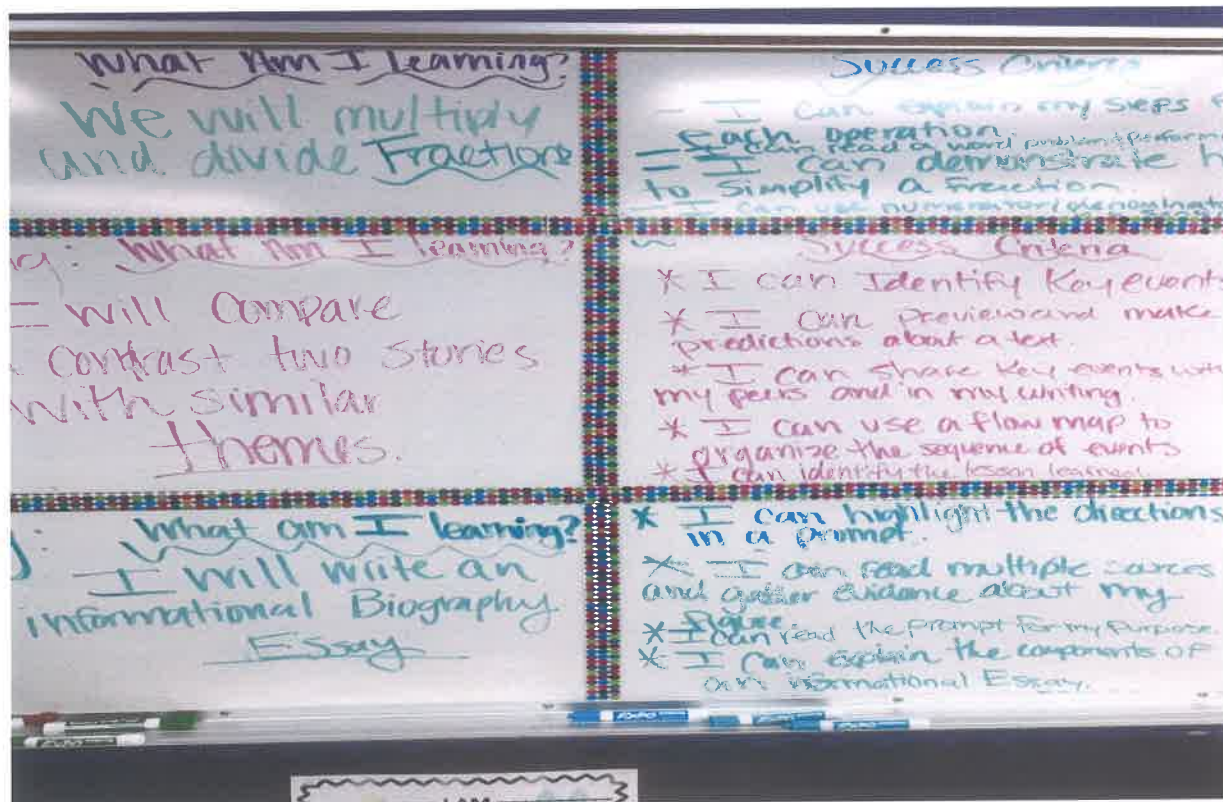 What Am I learning?
We will multiply
and divide Fractions
Success Criteria
- I can explain my steps
each operation
can read a word problem + perform
- I can demonstrate
to simplify a Fraction.
- I can use numerator/denominat
What Am I learning?
I will Compare
Contrast two Stories
With similar
themes.
Success Criteria
* I can Identify Key events
* I can preview and make
predictions about a text.
* I can share Key events with
my peers and in my writing.
* I can use a flow map to
organize the sequence of events
* I can identify the lesson learned
What am I learning?
I will write an
informational Biography
Essay
* I can highlight the directions
in a prompt.
* I can read multiple sources
and gather evidence about my
Figure
* I can read the prompt for my purpose.
* I can explain the components of
an informational Essay.
EXPO
I AM